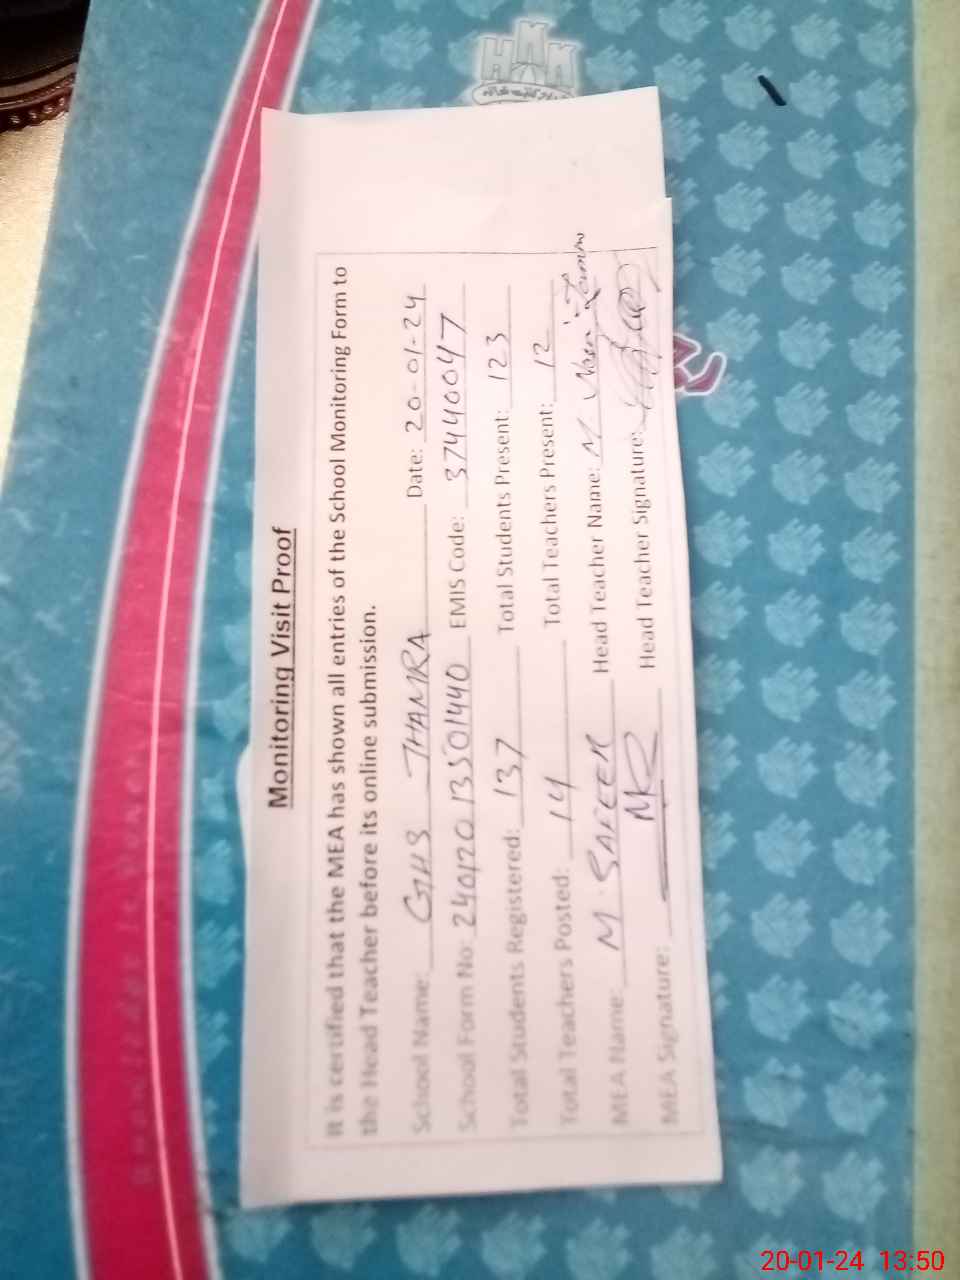 Monitoring Visit Proof
It is certified that the MEA has shown all entries of the School Monitoring Form to
the Head Teacher before its online submission.
School Name: GHS JHAMRA Date: 20-01-24
School Form No: 24012013501440 EMIS Code: 37440047
Total Students Registered: 137 Total Students Present: 123
Total Teachers Posted: 14 Total Teachers Present: 12
MEA Name: M. SAFEER Head Teacher Name: M
MEA Signature: Head Teacher Signature:
20-01-24 13:50